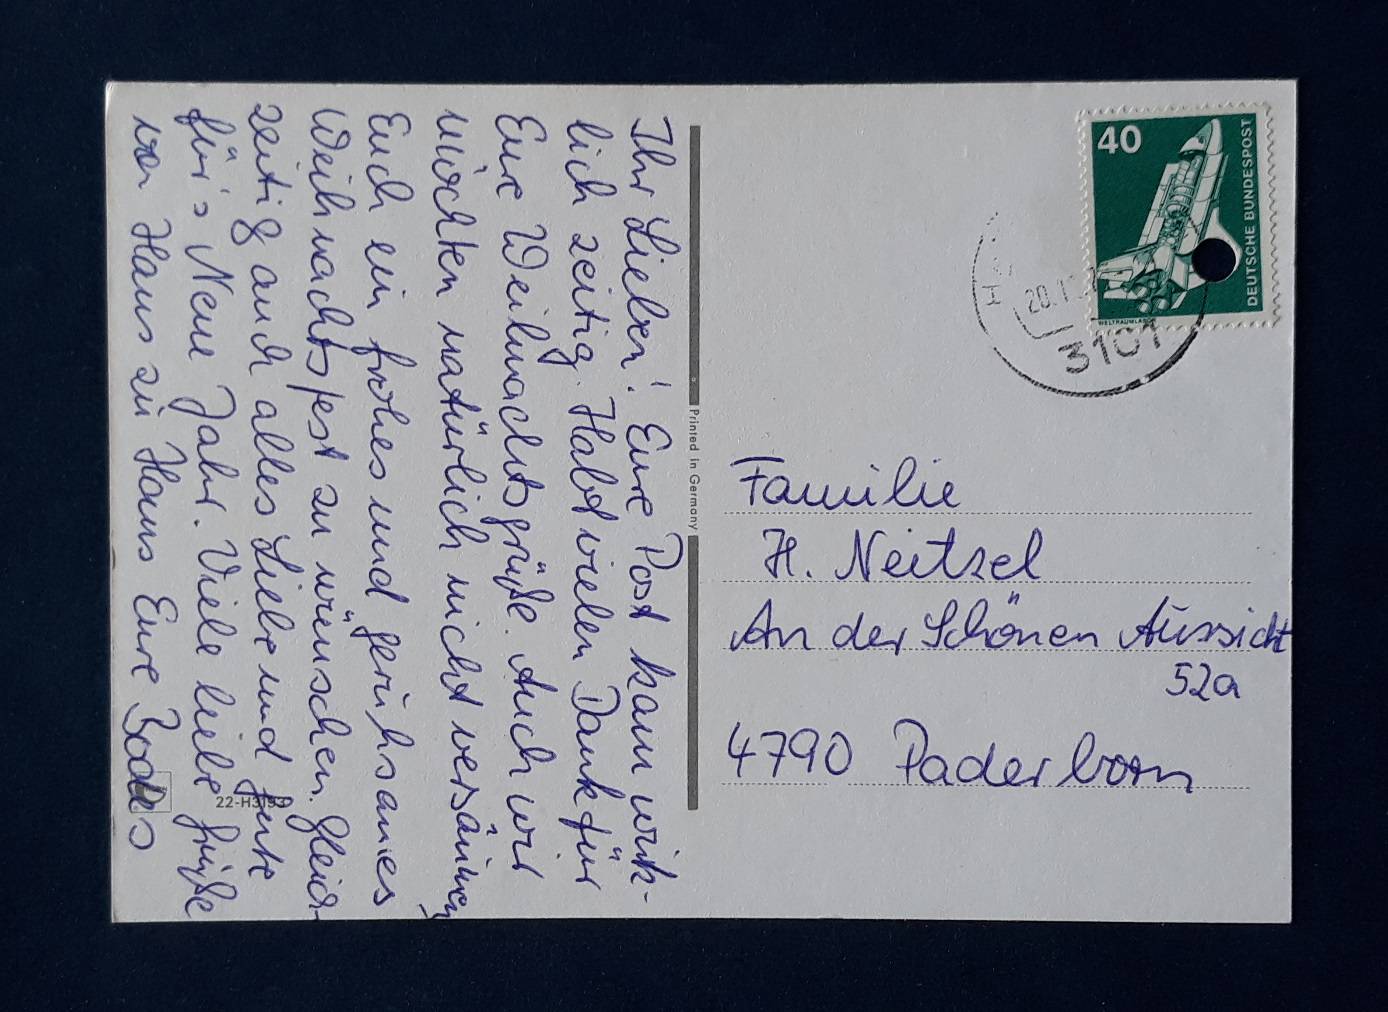 Ihr Lieben! Eure Post kam wirk-
lich zeitig. Habt vielen Dank für
Eure Weihnachtsgrüße. Auch wir
möchten natürlich nicht versäumen
Euch ein frohes und geruhsames
Weihnachtsfest zu wünschen. Gleich-
zeitig auch alles Liebe und Gute
für's Neue Jahr. Viele liebe Grüße
von Haus zu Haus Eure Bodes
22-H3193
Printed in Germany
40
DEUTSCHE BUNDESPOST
WELTRAUMLABOR
20.1
3101
Familie
H. Neitzel
An der Schönen Aussicht
52a
4790 Paderborn